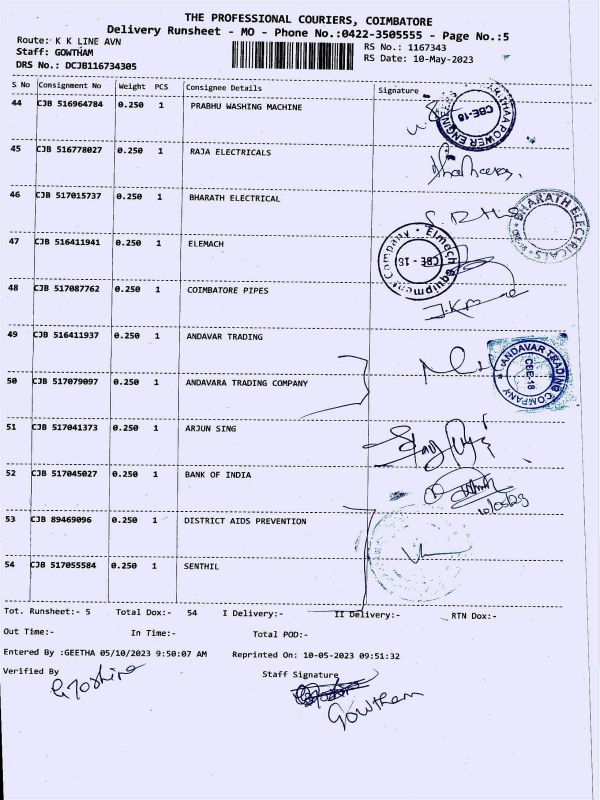 THE PROFESSIONAL COURIERS, COIMBATORE
Delivery Runsheet - MO - Phone No.:0422-3505555 - Page No.:5
Route: K K LINE AVN
RS No.: 1167343
Staff: GOWTHAM
RS Date: 10-May-2023
DRS No.: DCJB116734305
S No Consignment No Weight PCS Consignee Details Signature
44 CJB 516964784 0.250 1 PRABHU WASHING MACHINE
CBE-18
45 CJB 516778027 0.250 1 RAJA ELECTRICALS
46 CJB 517015737 0.250 1 BHARATH ELECTRICAL
BHARATH ELECTRICALS
47 CJB 516411941 0.250 1 ELEMACH
Elmech Equipment Company
CBE - 18
48 CJB 517087762 0.250 1 COIMBATORE PIPES
49 CJB 516411937 0.250 1 ANDAVAR TRADING
ANDAVAR TRADING COMPANY
CBE-18
50 CJB 517079097 0.250 1 ANDAVARA TRADING COMPANY
51 CJB 517041373 0.250 1 ARJUN SING
52 CJB 517045027 0.250 1 BANK OF INDIA
10/05/23
53 CJB 89469096 0.250 1 DISTRICT AIDS PREVENTION
54 CJB 517055584 0.250 1 SENTHIL
Tot. Runsheet:- 5 Total Dox:- 54 I Delivery:- II Delivery:- RTN Dox:-
Out Time:- In Time:- Total POD:-
Entered By :GEETHA 05/10/2023 9:50:07 AM Reprinted On: 10-05-2023 09:51:32
Verified By Staff Signature
Gowtham